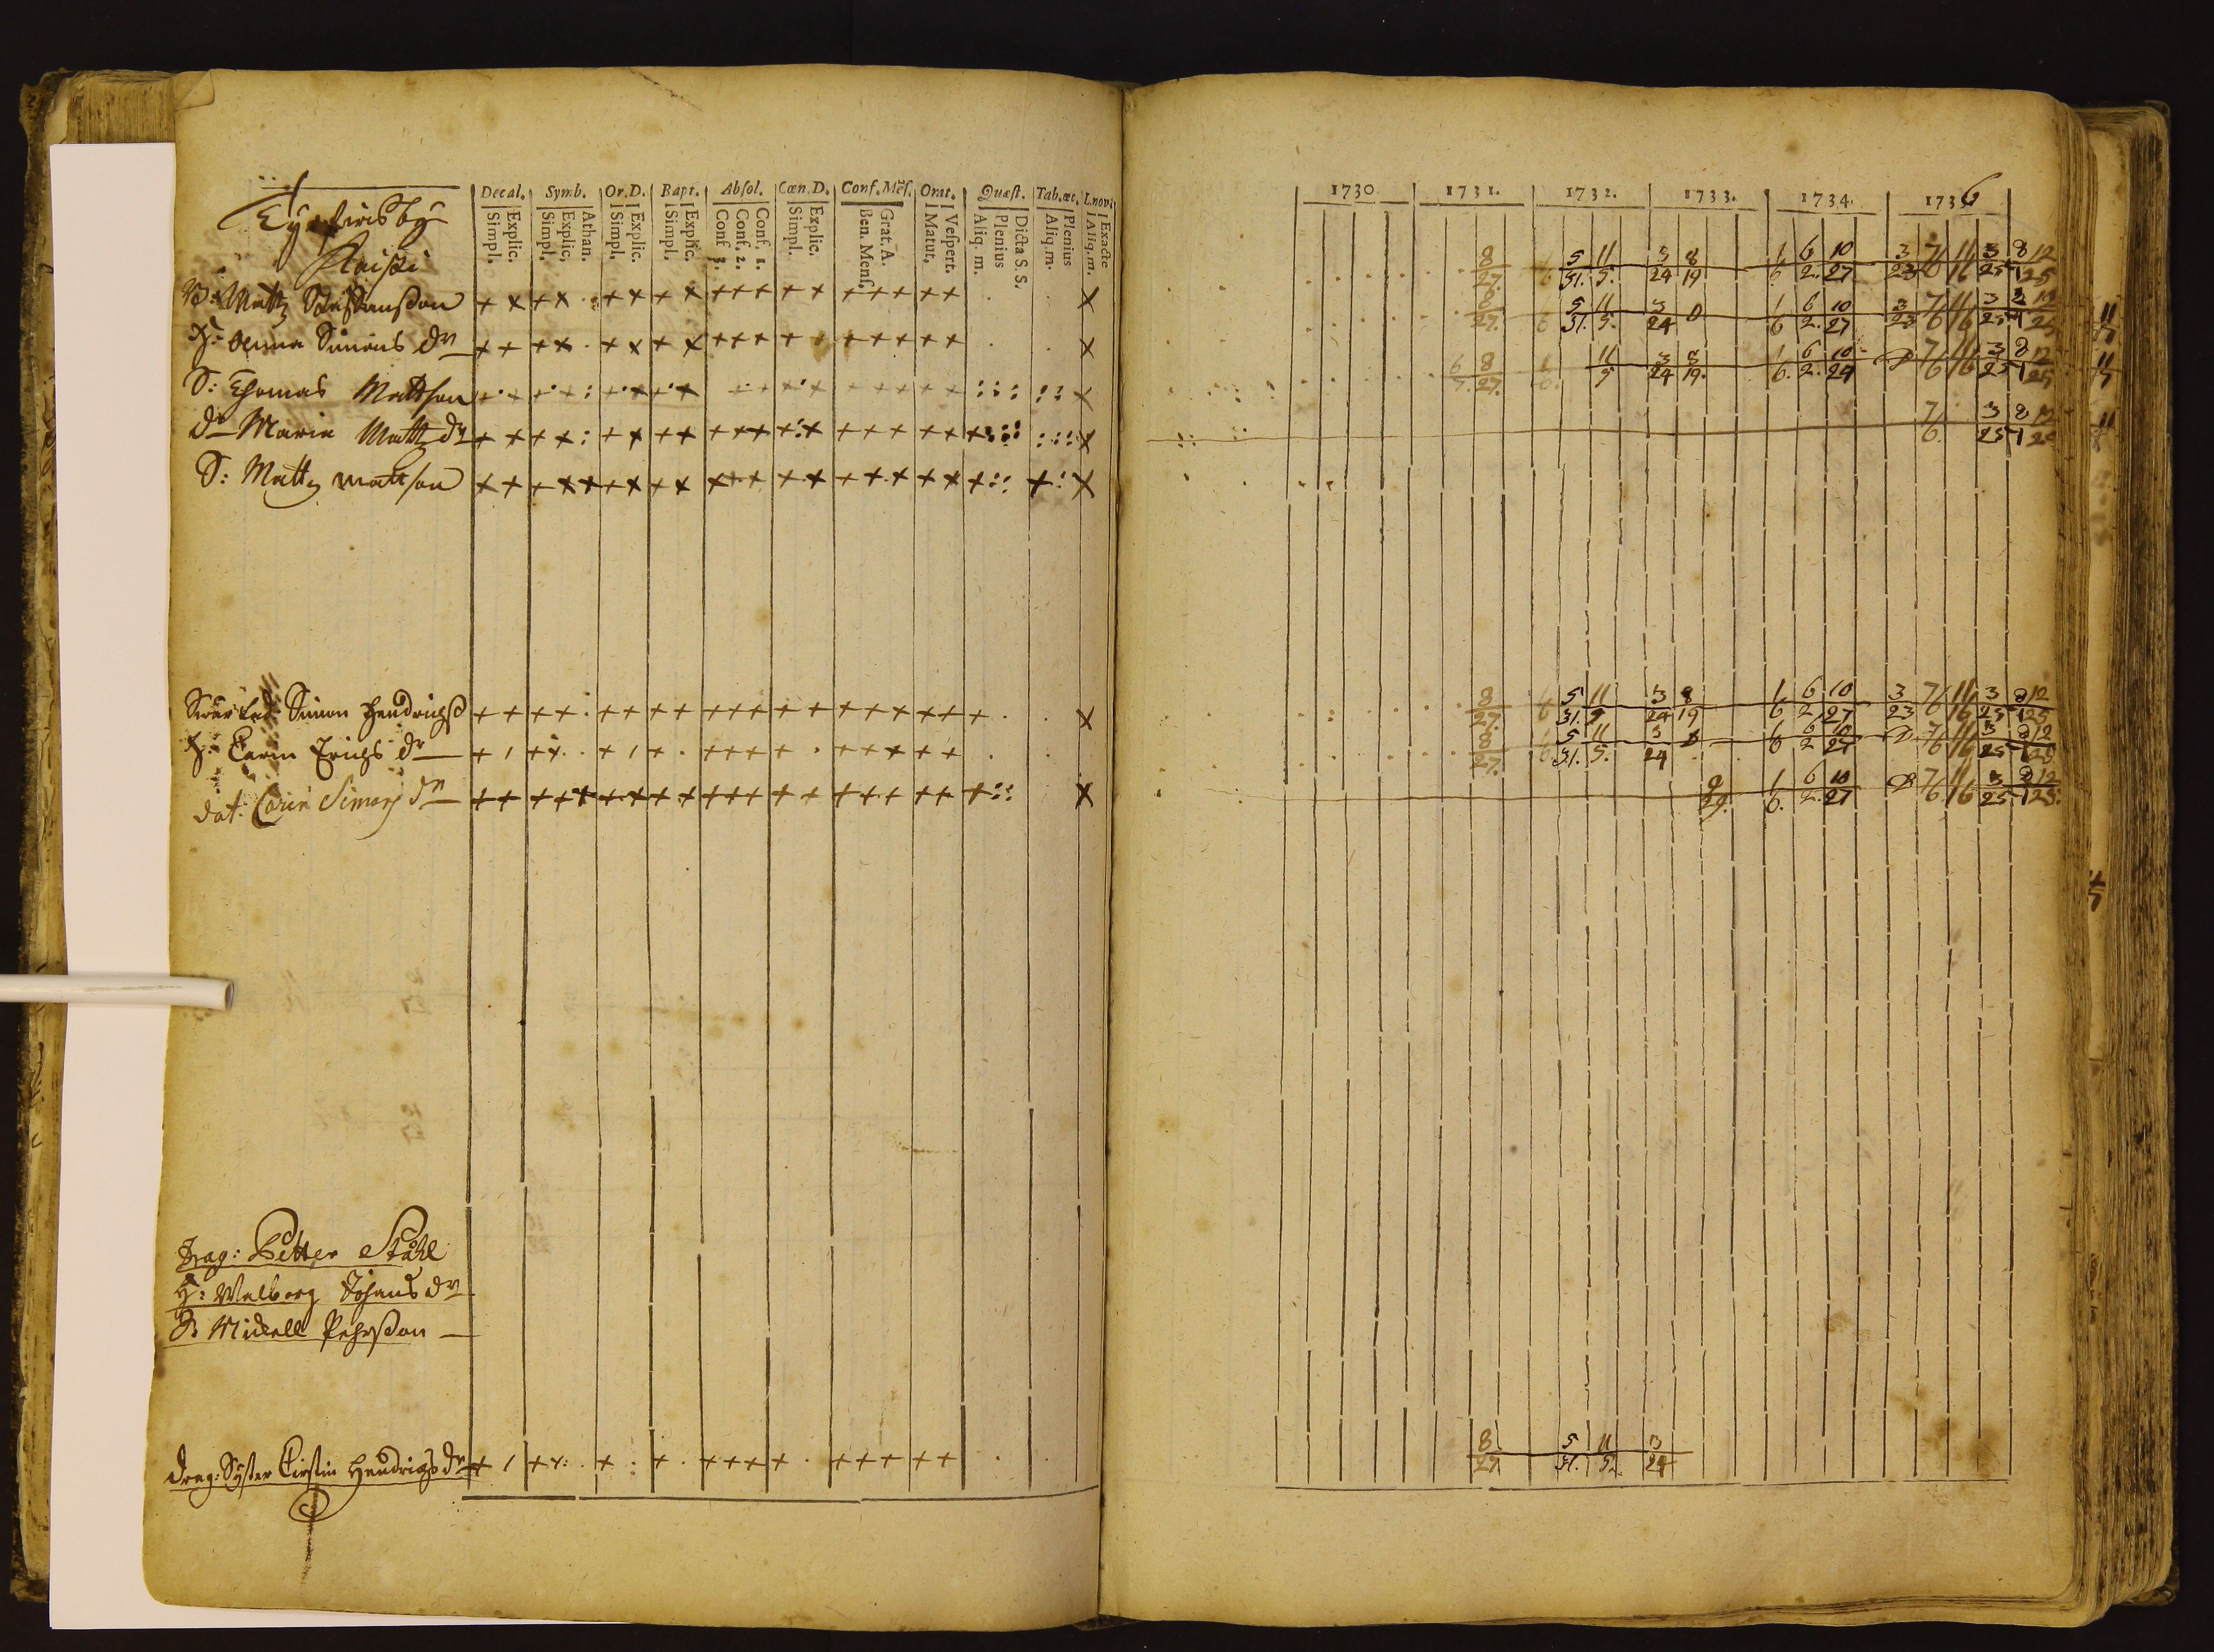 Decal. Symb. Or.D. Bapt. Absol. Cœn.D. Conf.Mēs. Orat. Quæst. Tab.œc. L.nov.
Simpl. Explic. Simpl. Explic. Athan. Simpl. Explic. Simpl. Explic. Conf. 3. Conf. 2. Conf. 1. Simpl. Explic. Ben. Mens. Grat. A. Matut. Vespert. Aliq. m. Plenius Dicta S.S. Aliq. m. Plenius Aliq. m. Exacte
Matts Staffansson
H: Anna Simons dr
S: Thomas Mattsson
dr Maria Matts dr
S: Matts mattson
Simon Hendrichss
H: Carin Erichs dr
dot. Carin Simons dr
Drag: Petter Ståhl
H: Walborg Johans dr
S: Mickell Pehrsson
drag: Syster Kirstin Hendrigs dr
1730 1731. 1732. 1733. 1734. 1736
8/27. 5/31. 11/5. 3/24 8/19 1/6. 6/2. 10/27 3/23 7/6 11/16 3/25 8/1 12/25
8/27. 5/31. 11/5. 3/24 1/6 6/2. 10/27 3/23 7/6 11/16 3/25 8/1 12/25
6/5. 8/27. 11/5 3/24 8/19. 1/6. 6/2. 10/27 7/6 11/16 3/25 8/1 12/25
7/6. 3/25 8/1 12/25
8/27. 5/31. 11/5 3/24 8/19 1/6 6/2. 10/27 3/23 7/6 11/16 3/25 8/1 12/25
8/27. 5/31. 11/5. 3/24 1/6 6/2 10/27 7/6 11/16 3/25 8/1 12/25
9/29. 1/6. 6/2. 10/27 7/6 11/16 3/25 8/1 12/25.
8/27 5/31. 11/5. 3/24